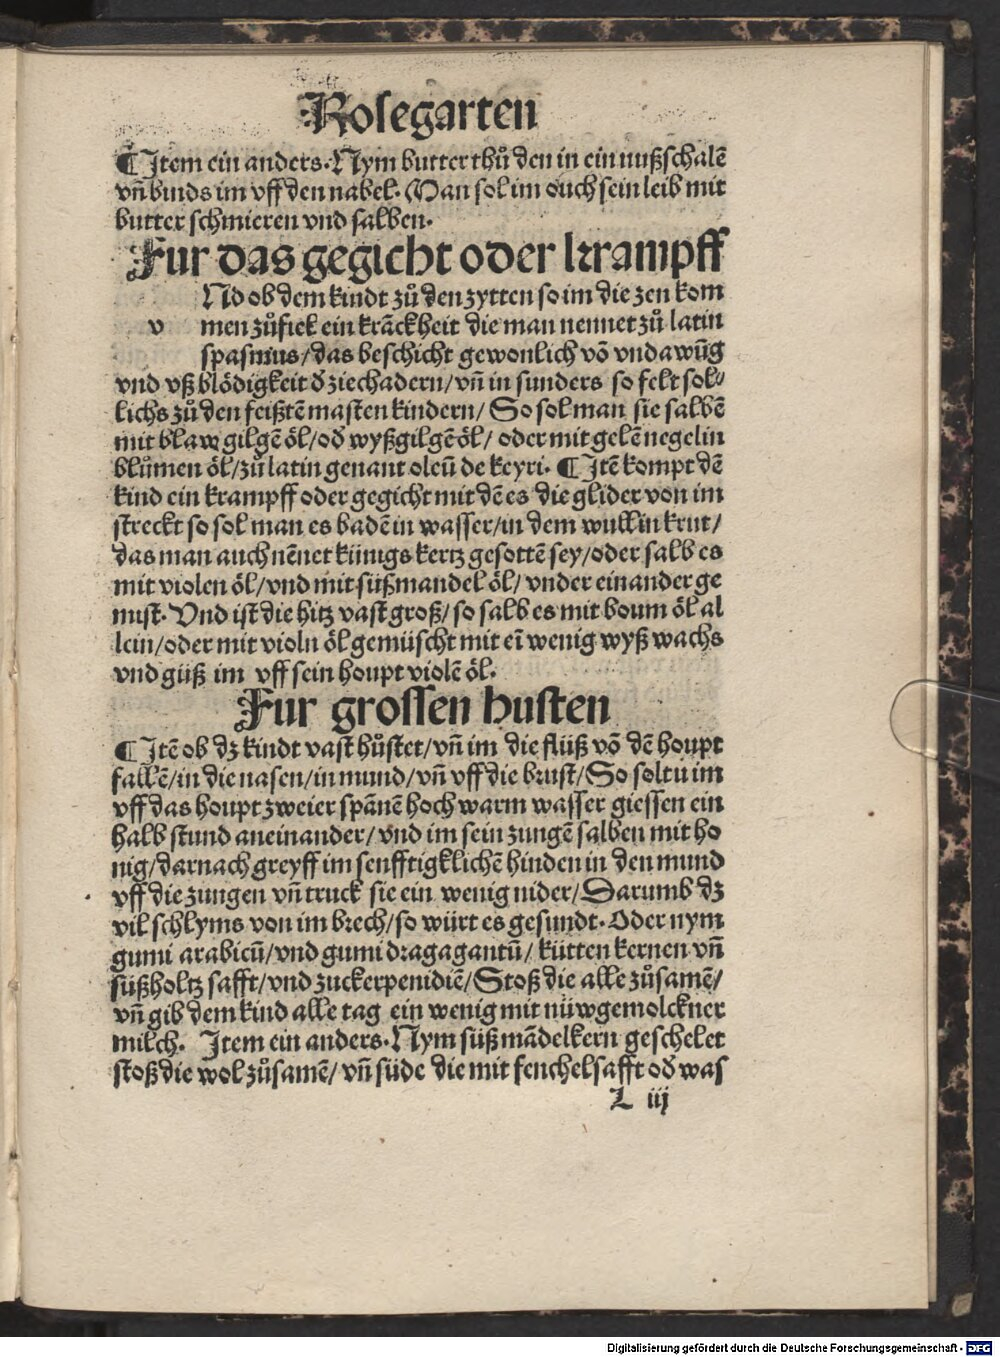 Rosegarten
¶Item ein anders. Nym butter thů den in ein nußschalē
vn̄ binds im vff den nabel. Man sol im ouch sein leib mit
butter schmieren vnd salben.
Fur das gegicht oder krampff
Nd ob dem kindt zů den zytten so im die zen kom
v men zůfiel ein krāckheit die man nennet zů latin
spasmus/das beschicht gewonlich vō vndawūg
vnd vß blödigkeit ď ziechadern/vn̄ in sunders so felt sol⸗
lichs zů den feißtē masten kindern/ So sol man sie salbē
mit blaw gilgē öl/oď wyßgilgē öl/ oder mit gelē negelin
blůmen öl/zů latin genant oleū de keyri. ¶Itē kompt dē
kind ein krampff oder gegicht mit dē es die glider von im
streckt so sol man es badē in wasser/in dem wullin krut/
das man auch nēnet künigs kertz gesottē sey/oder salb es
mit violen öl/vnd mit süßmandel öl/ vnder einander ge
mist. Vnd ist die hitz vast groß/so salb es mit boum öl al
lein/oder mit violn öl gemüscht mit eī wenig wyß wachs
vnd güß im vff sein houpt violē öl.
Fur grossen husten
¶Itē ob dz kindt vast hůstet/vn̄ im die flüß vō dē houpt
fallē/in die nasen/in mund/vn̄ vff die brust/So soltu im
vff das houpt zweier spānē hoch warm wasser giessen ein
halb stund aneinander/vnd im sein zungē salben mit ho
nig/darnach greyff im senfftigklichē hinden in den mund
vff die zungen vn̄ truck sie ein wenig nider/Darumb dz
vil schlyms von im brech/so würt es gesundt. Oder nym
gumi arabicū/vnd gumi dragagantū/ kütten kernen vn̄
süßholtz safft/vnd zuckerpenidiē/Stoß die alle zůsamē/
vn̄ gib dem kind alle tag ein wenig mit nüwgemolckner
milch. Item ein anders. Nym süß mādelkern geschelet
stoß die wol zůsamē/ vn̄ süde die mit fenchelsafft oď was
L iij
Digitalisierung gefördert durch die Deutsche Forschungsgemeinschaft - DFG